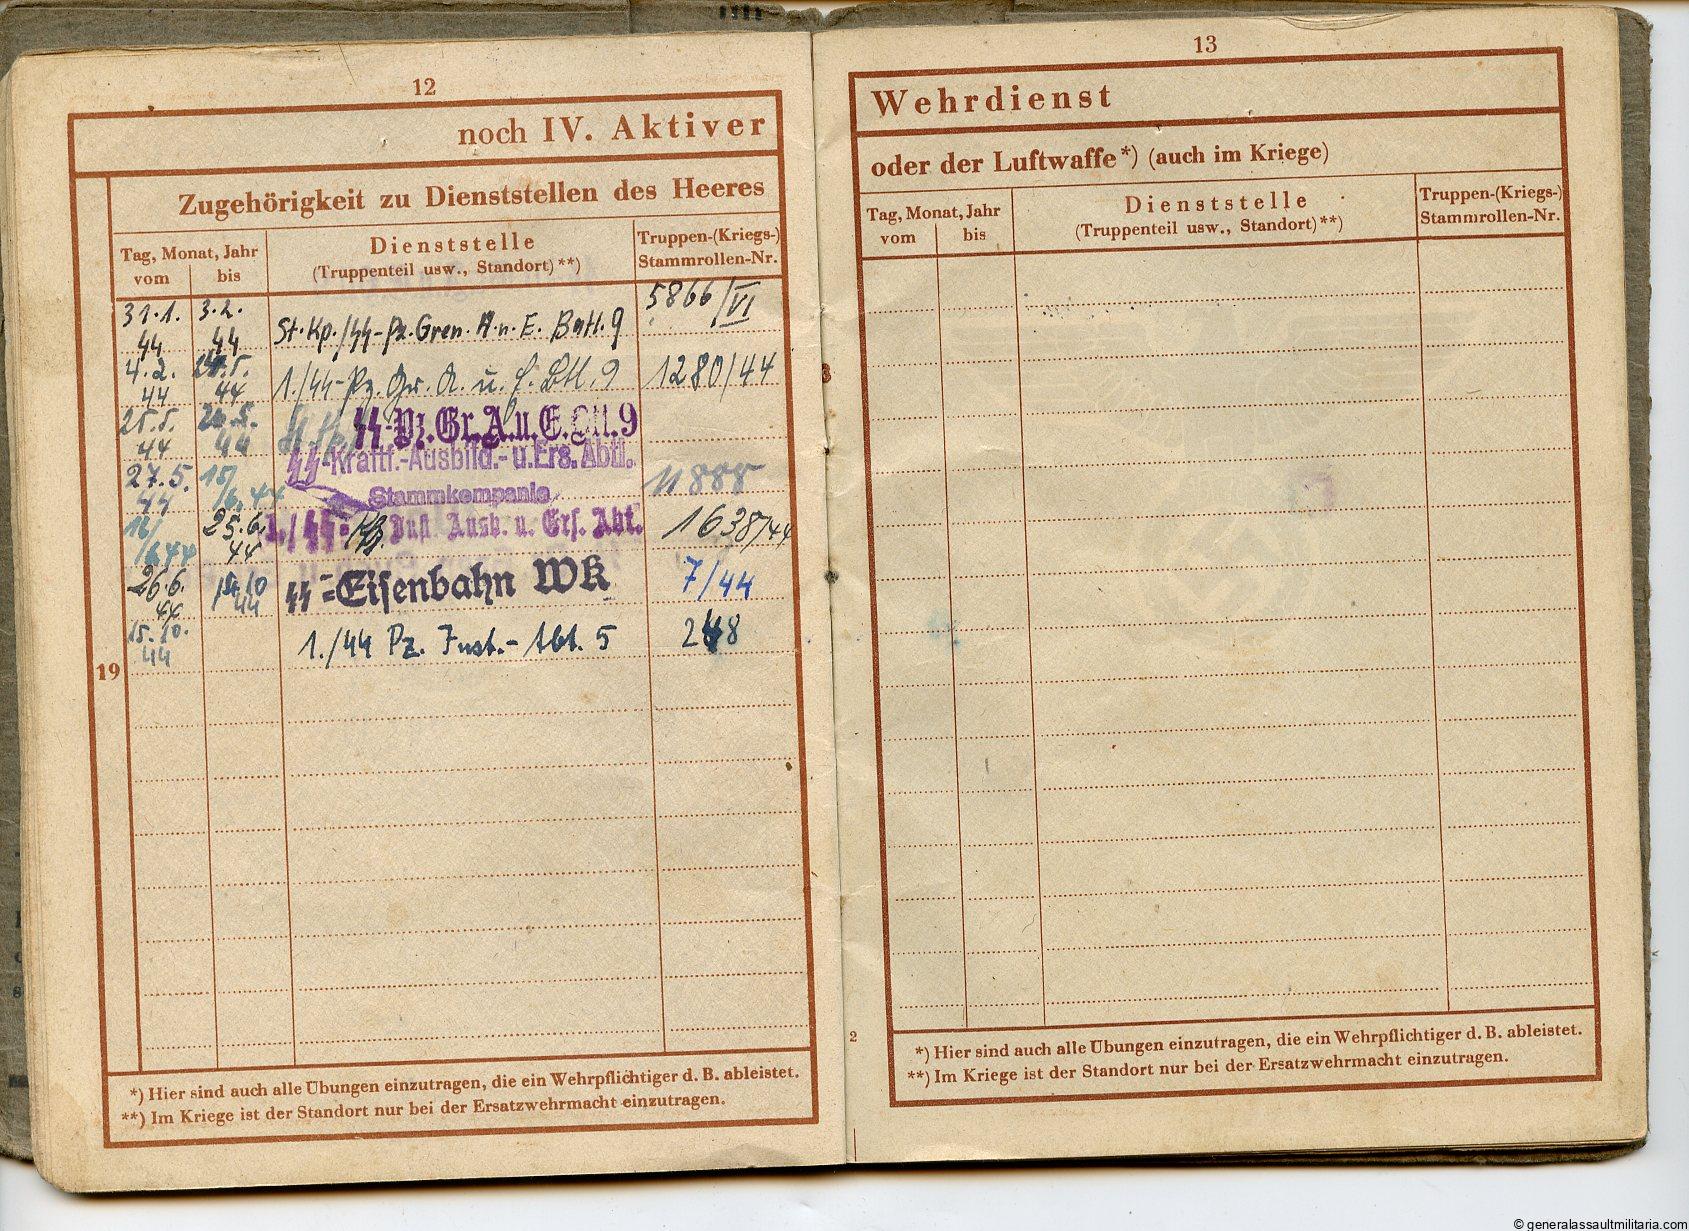 12
noch IV. Aktiver
Zugehörigkeit zu Dienststellen des Heeres
Tag, Monat, Jahr
vom bis
Dienststelle
(Truppenteil usw., Standort)**)
Truppen-(Kriegs-)
Stammrollen-Nr.
31.1. 3.2. 5866/VI
44 44 St.Kp./SS-Pz.Gren.A.u.E. Batl.9
4.2. 1./SS-Pz.Gr.A.u.E.Btl.9 1280/44
44 44
25.5. SS-Pz.Gr.A.u.E.Btl.9
44 44
SS-Kraftf.-Ausbild.-u.Ers.Abtl.
27.5. 15/ Stammkompanie 11888
44 6.44
16/ 25.6. 1./SS-Pz. Inst. Ausb. u. Ers. Abt. 1638/44
6.44 44
26.6. 14.10 SS-Eisenbahn WK 7/44
44 44
15.10. 1./SS Pz. Inst.-Abt. 5
44
19
*) Hier sind auch alle Übungen einzutragen, die ein Wehrpflichtiger d. B. ableistet.
**) Im Kriege ist der Standort nur bei der Ersatzwehrmacht einzutragen.
13
Wehrdienst
oder der Luftwaffe*) (auch im Kriege)
Tag, Monat, Jahr
vom bis
Dienststelle
(Truppenteil usw., Standort)**)
Truppen-(Kriegs-)
Stammrollen-Nr.
2
*) Hier sind auch alle Übungen einzutragen, die ein Wehrpflichtiger d. B. ableistet.
**) Im Kriege ist der Standort nur bei der Ersatzwehrmacht einzutragen.
© generalassaultmilitaria.com